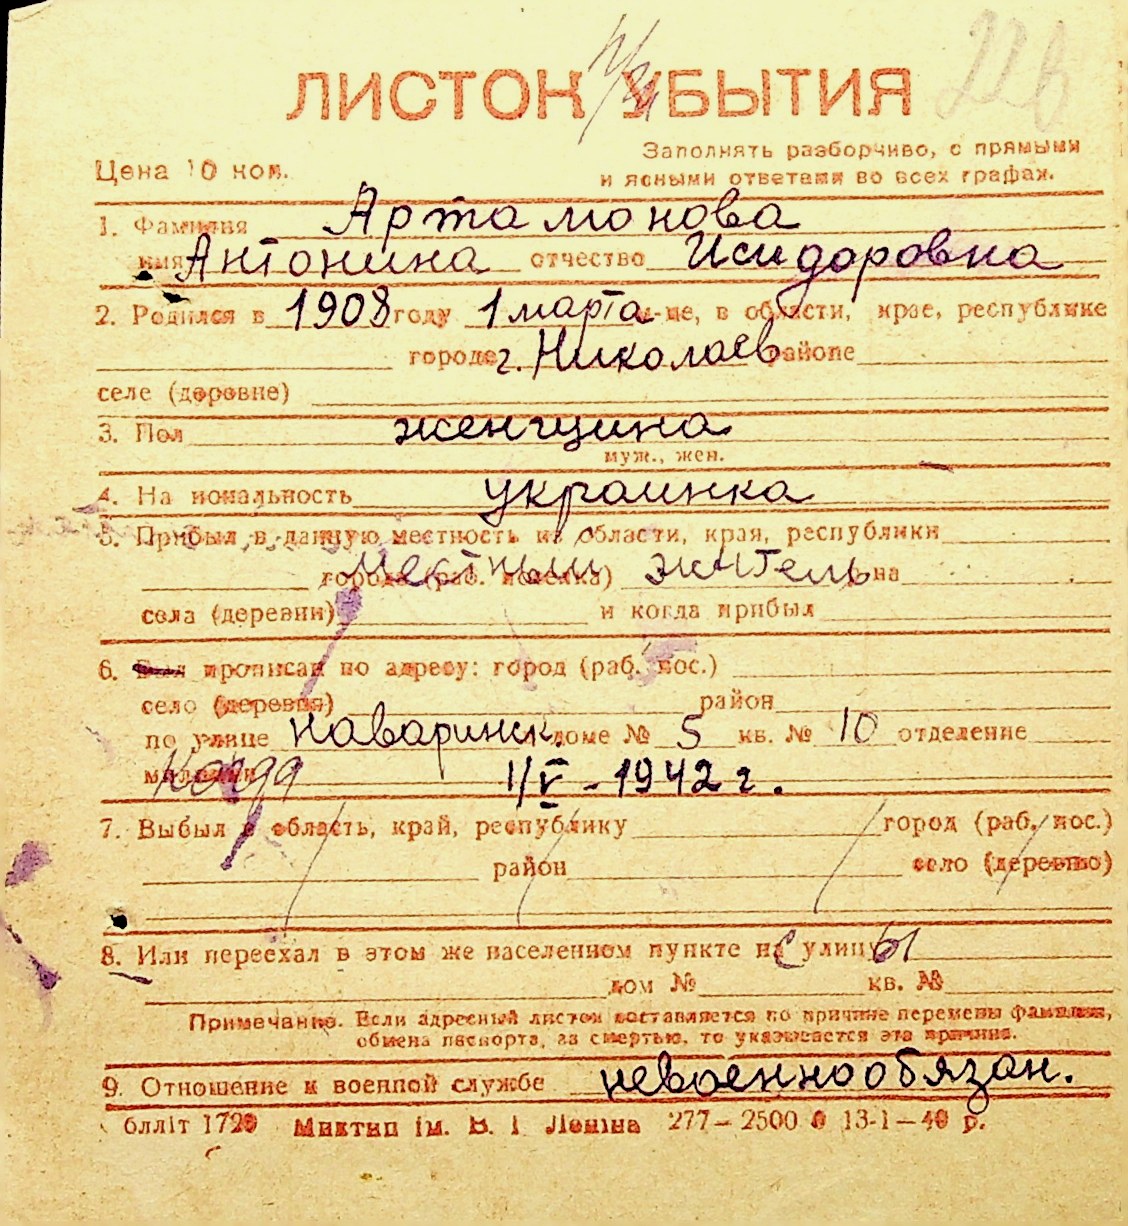 ЛИСТОК УБЫТИЯ
Цена 10 коп.
Заполнять разборчиво, с прямыми
и ясными ответами во всех графах.
1. Фамилия Артамонова
имя Антонина отчество Исидоровна
2. Родился в 1908 году 1 марта м-це, в области, крае, республике
городе г. Николаев районе
селе (деревне)
3. Пол женщина
муж., жен.
4. Национальность украинка
5. Прибыл в данную местность из области, края, республики
города (раб. поселка) местный житель она
села (деревни) и когда прибыл
6. Был прописан по адресу: город (раб. пос.)
село (деревня) район
по улице Наваринск. доме № 5 кв. № 10 отделение
милиции Когда 1/V - 1942 г.
7. Выбыл в область, край, республику город (раб. пос.)
район село (деревню)
8. Или переехал в этом же населенном пункте на с улицы
дом № кв. №
Примечание. Если адресный листок составляется по причине перемены фамилии,
обмена паспорта, за смертью, то указывается эта причина.
9. Отношение к военной службе невоеннообязан.
блліт 1720 Миктип ім. В. І. Леніна 277—2500 13-1—40 р.